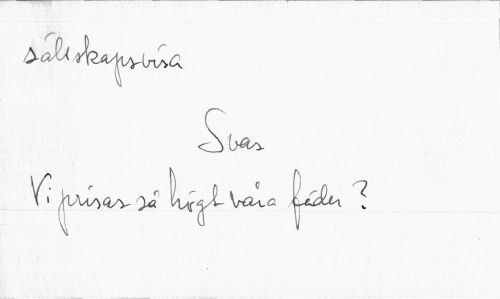 sällskapsvisa
Svar
Vi prisas så högt våra fäder?